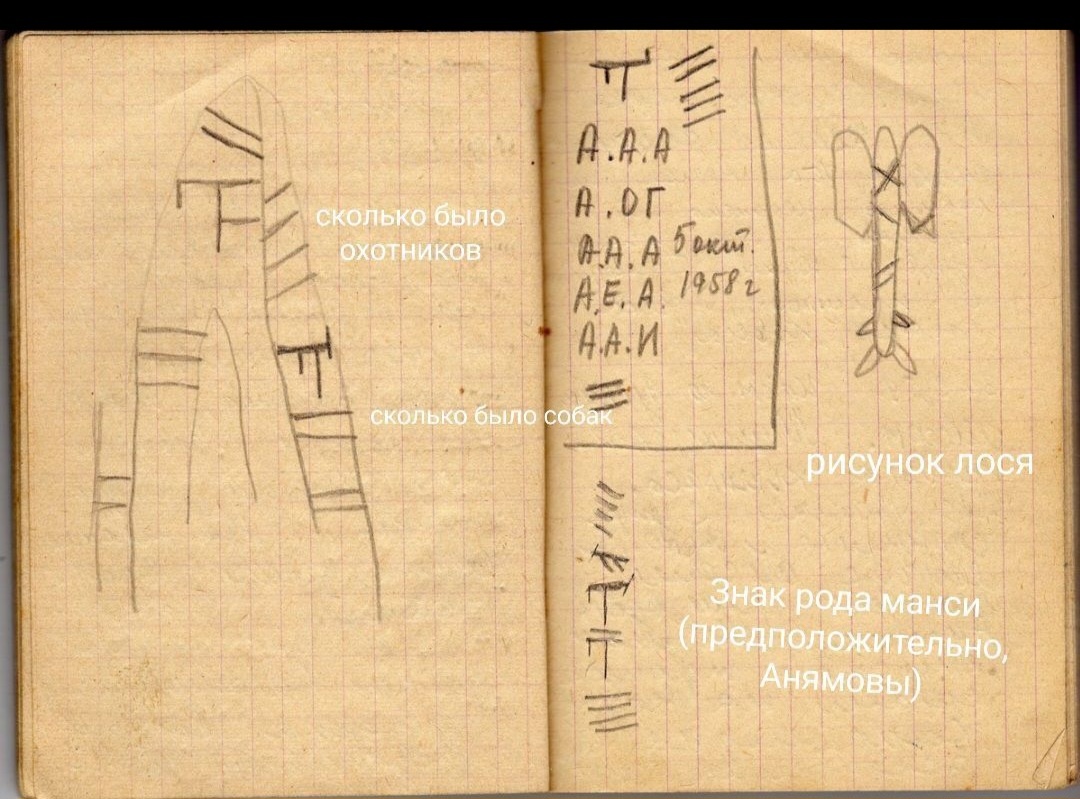 сколько было
охотников
сколько было собак
А.А.А
А.ОГ
А.А.А 5 окт.
А.Е.А. 1958 г
А.А.И
рисунок лося
Знак рода манси
(предположительно,
Анямовы)